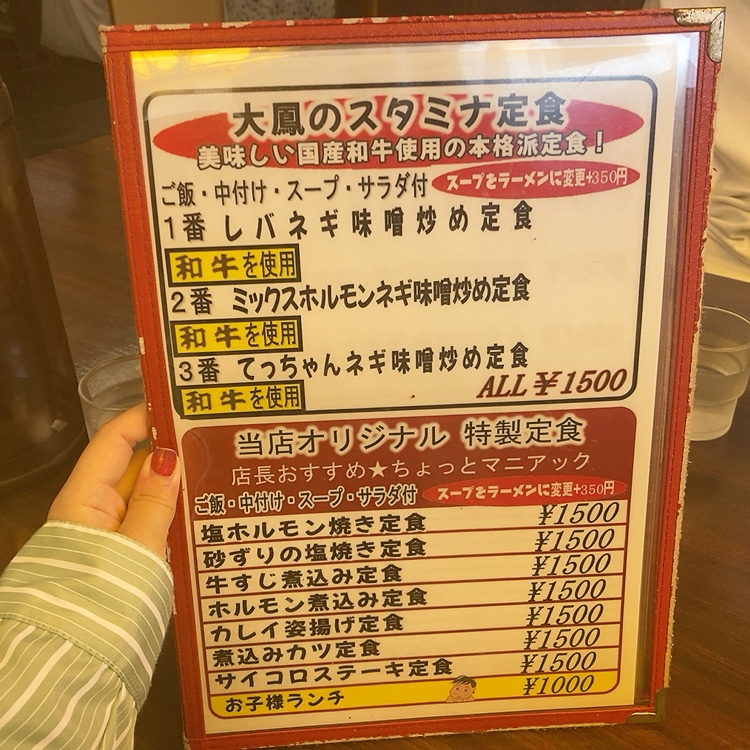 大鳳のスタミナ定食
美味しい国産和牛使用の本格派定食！
ご飯・中付け・スープ・サラダ付 スープをラーメンに変更+350円
1番 レバネギ味噌炒め定食
和牛を使用
2番 ミックスホルモンネギ味噌炒め定食
和牛を使用
3番 てっちゃんネギ味噌炒め定食
和牛を使用 ALL ¥1500
当店オリジナル 特製定食
店長おすすめ★ちょっとマニアック
ご飯・中付け・スープ・サラダ付 スープをラーメンに変更+350円
塩ホルモン焼き定食 ¥1500
砂ずりの塩焼き定食 ¥1500
牛すじ煮込み定食 ¥1500
ホルモン煮込み定食 ¥1500
カレイ姿揚げ定食 ¥1500
煮込みカツ定食 ¥1500
サイコロステーキ定食 ¥1500
お子様ランチ ¥1000